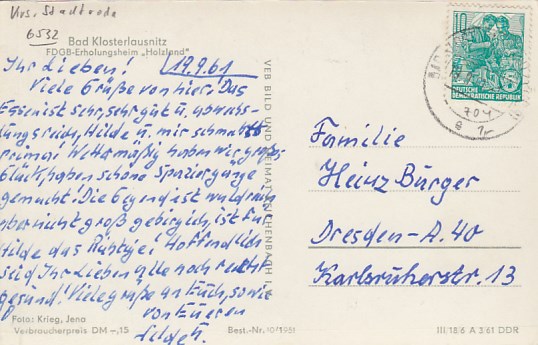 Krs. Stadtroda
6532
Bad Klosterlausnitz
FDGB-Erholungsheim „Holzland"
Ihr Lieben! 19.9.61
Viele Grüße von hier. Das
Essen ist sehr, sehr gut u. abwechs-
lungsreich, Hilde u. mir schmeckt
prima! Wettermäßig haben wir großes
Glück, haben schöne Spaziergänge
gemacht! Die Gegend ist waldreich
aber nicht groß gebirgich, ist für
Hilde das Richtige! Hoffendlich
seid Ihr Lieben alle noch recht
gesund! Viele grüße an Euch, sowie
von Eueren
Foto: Krieg, Jena
Verbraucherpreis DM –,15
Best.-Nr. 10/1951
VEB BILD UND HEIMAT REICHENBACH I. V.
10
DEUTSCHE
DEMOKRATISCHE REPUBLIK
Familie
Heinz Bürger
Dresden-A. 40
Karlsruherstr. 13
III/18/6 A 3/61 DDR